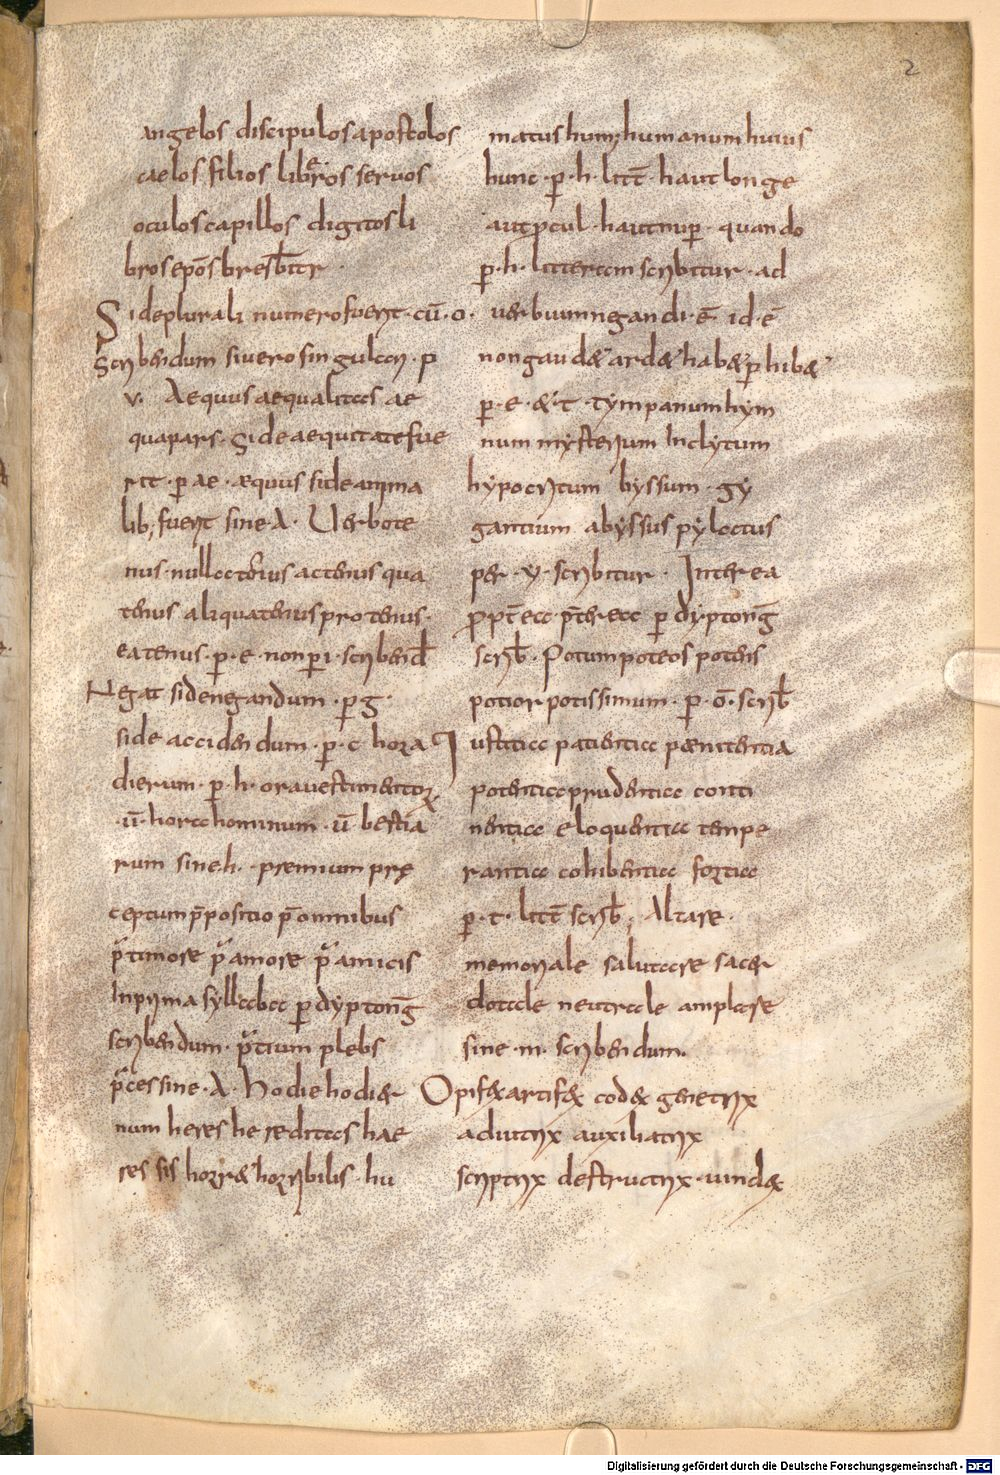 2
angelos discipulos apostolos
caelos filios liberos servos
oculos capillos digitos li
bros epōs bresbīter
Si deplurali numero fuerit · cū · o ·
scribendum si vero singulari · p
v. Aequus aequalitas ae
quapars · Si de aequitate fue
rit · p ae · æquus si de anima
lib; fuerit sine · A · Uerbo te
nus · nullatenus actenus qua
tenus aliquatenus pro tenus ·
ea tenus · p · e · non p i · scribend
Negat si de negandum · p g ·
si de accidendum · p · c · hora
dierum · p · h · ora vestimentor
· ū · hora hominum · ū bestia
rum sine · h · premium prę
ceptum p̄positio p̄ omnibus
p̄ timore p̄ amore p̄ amicis
In prima syllaba p dyptonḡ
scribendum · p̄tium plebs
p̄ces sine · A · Hodie hodier
num heres hereditas hae
res sis horret horribilis · hu
matus hum; humanum huius
hunc · p · h · litt̄ · haut longe
aut p̱cul · haut nup · quando
p · h · litteram scribitur · ad
uerbium negandi · ē · id · ē
non gaudet ardet habet p hibet
p · e · et · t · tympanum hym
num mysterium Inclytum
hypocritum byssum · gy
gantium abyssus pylatus
per · y · scribitur · Interea
propt̄ea · p̄terea p dyptonḡ
scrib̄ · Potum poteos potens
potior potissimum · p · ō · scrib̄
Iustitia patientia pænitentia
potentia prudentia conti
nentia eloquentia tempe
rantia cohibentia fortia
p · t · litt̄ scrib̄ ; Altare ·
memoriale salutare sacer
dotale neutrale amplare
sine · m · scribendum.
Opifex artifex codex genetrix
adiutrix auxiliatrix
scriptrix destructrix · uindex
Digitalisierung gefördert durch die Deutsche Forschungsgemeinschaft - DFG